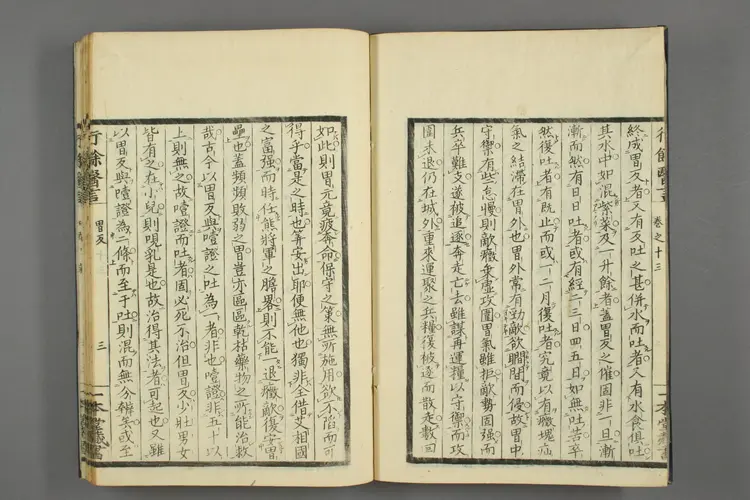 行餘醫言 卷之十三
終成胃反者又有反吐之甚併水而吐者又有水食俱吐
其水中如混紫菜及一升餘者蓋胃反之催固非一旦漸
漸而然有日日吐者或有經二三日四五日如無吐苦卒
然復吐者有既止而或一二月復吐者究竟以有癥塊疝
氣之結滯在胃外也胃外常有勁敵欲瞯間而侵故胃中
守禦有些怠慢則敵癥乘虛攻圍胃氣雖拒敵勢固强而
兵卒難支遂被追逐奔走亡去雖謀再運糧以守禦而攻
圍未退仍在城外重來運聚之兵糧復被逵而散走數回
如此則胃元竟疲奔命保守之策無所施用欲不陷而可
得乎當是之時也筭安出耶便無他也獨非全借艾相國
之富强而時任熊將軍之膽畧則不能一退癥敵復安胃
壘也蓋頻頻敗弱之胃豈亦區區乾枯藥物之所能治救
哉古今以胃反與噎證之吐為一者非也噎證非五十以
上則無之故噎證而吐者固必死不治但胃反少壯男女
皆有之在小兒則哯乳是也故治得其法者可起也又雖
以胃反與噎證為二條而至于吐則混而無分辨矣或至
行餘醫言 胃反 三 一本堂藏書